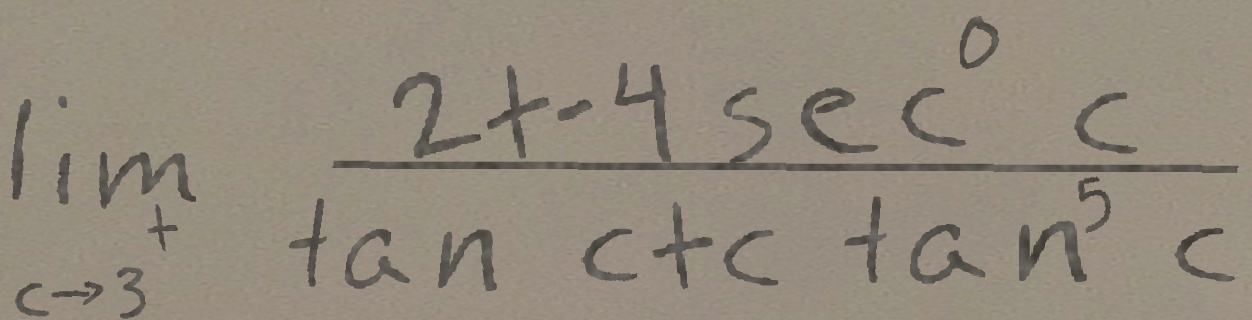 \lim_{c \to 3^+} \frac{2+-4 \sec^0 c}{\tan c+c \tan^5 c}